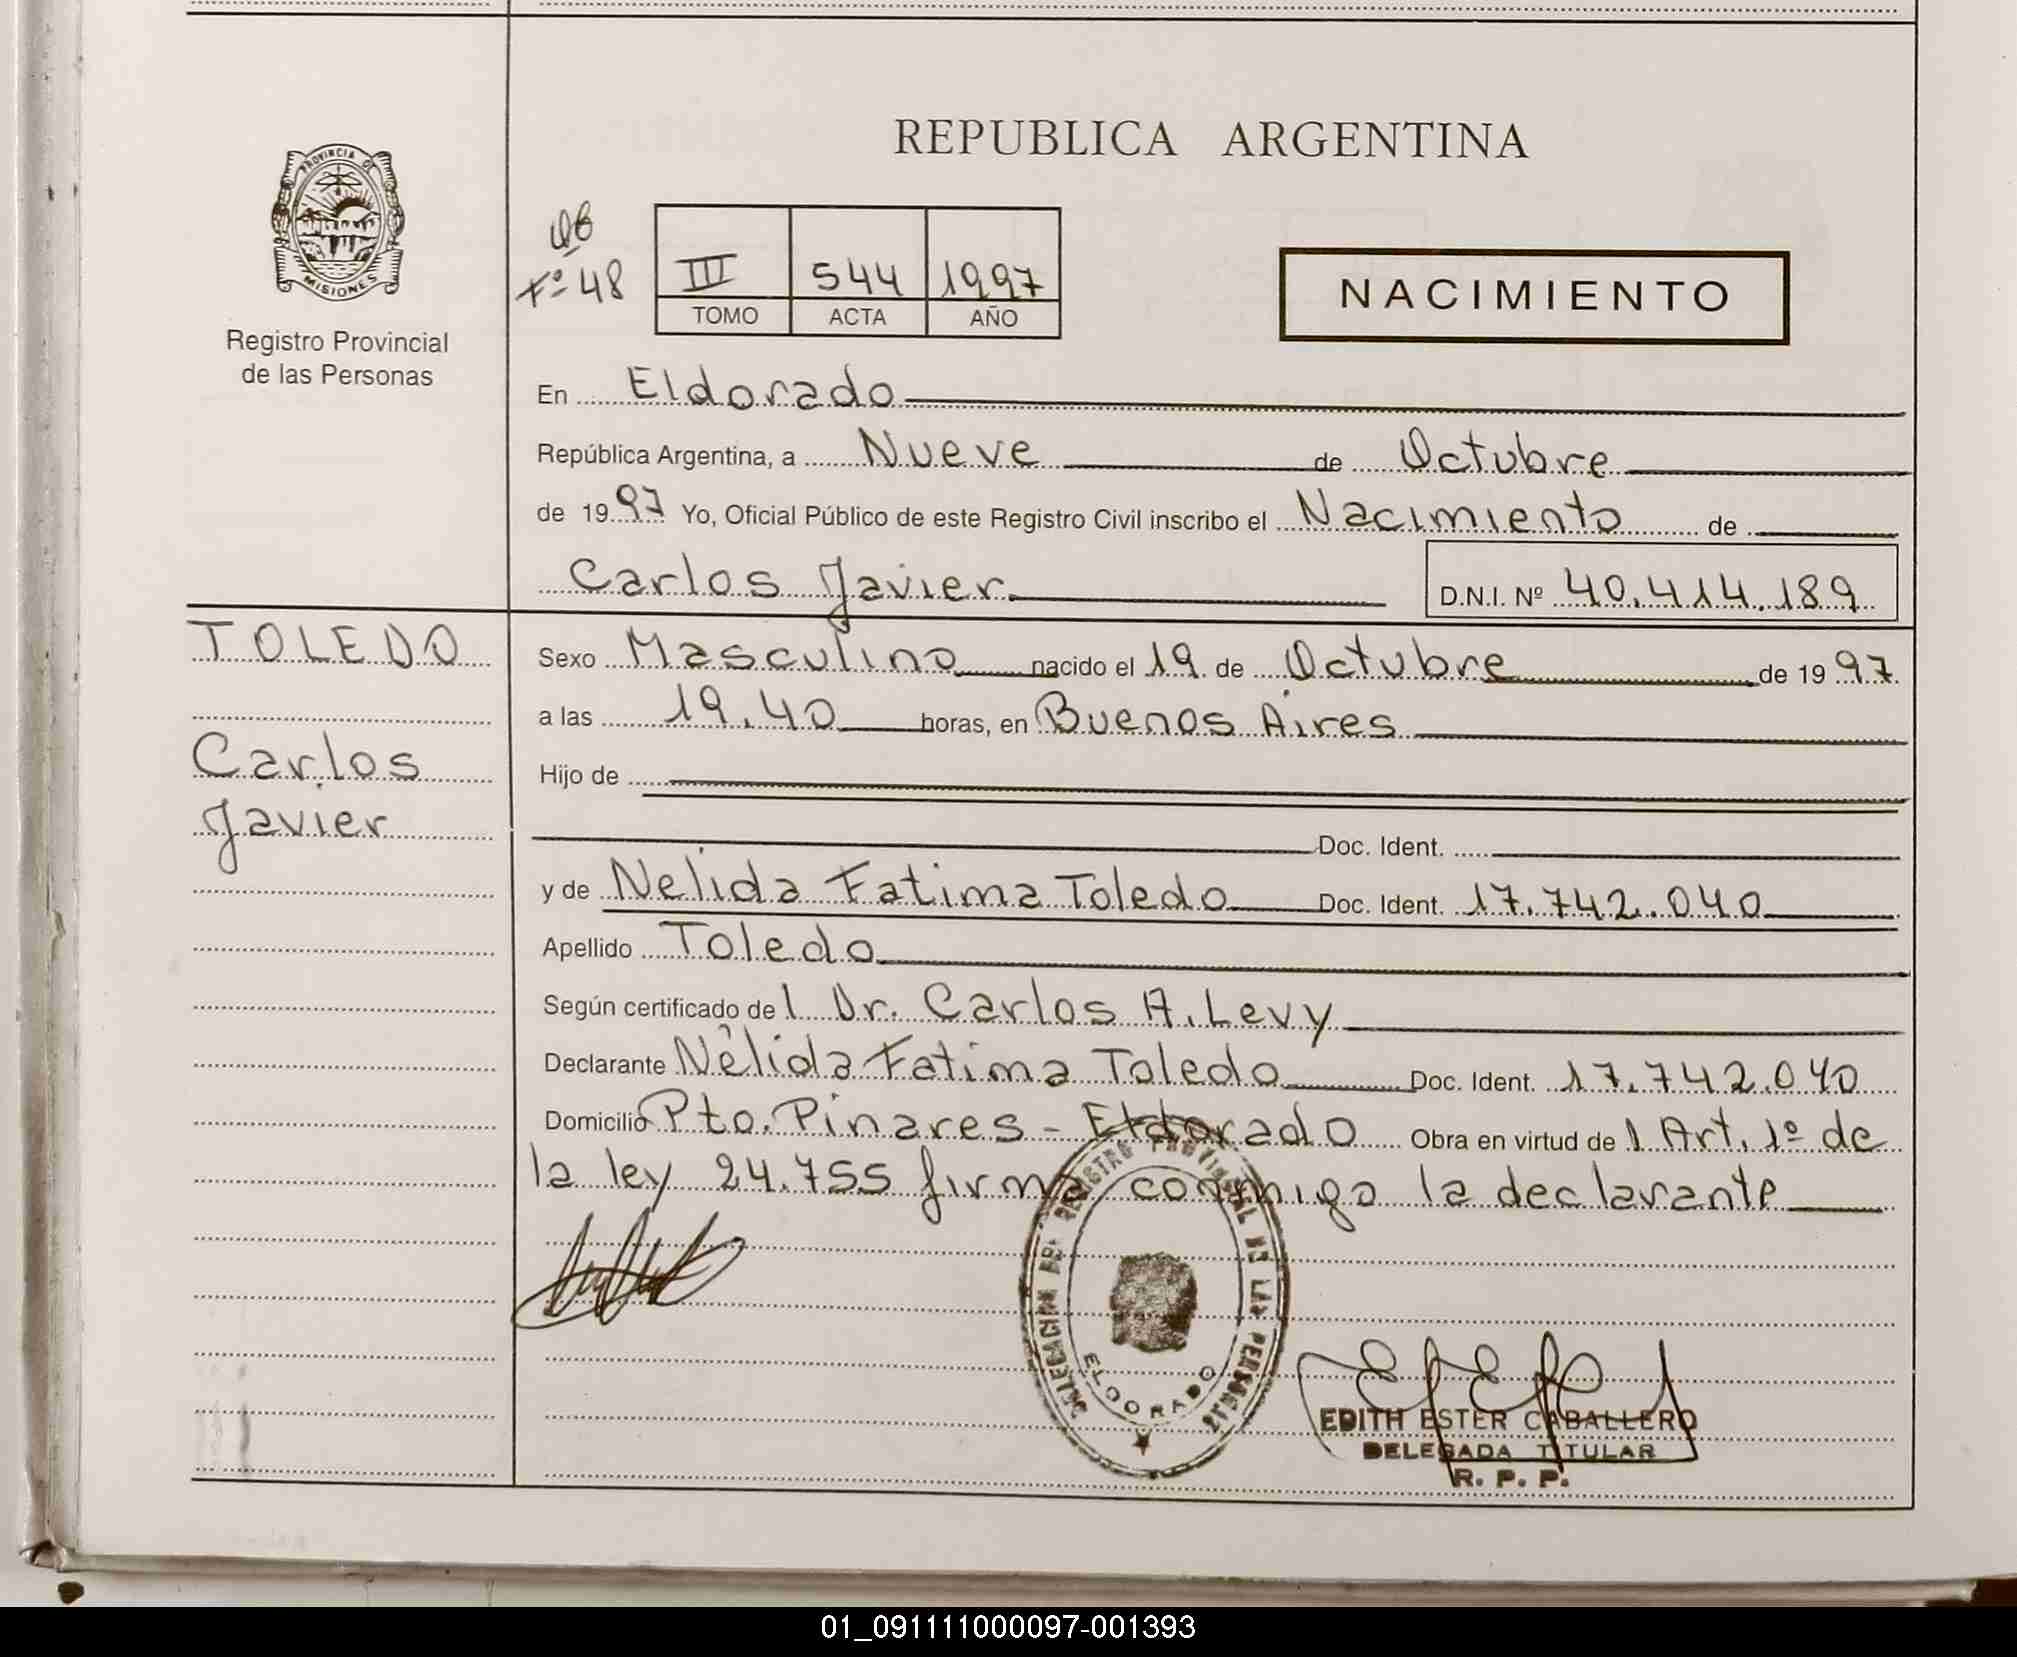 REPUBLICA ARGENTINA
PROVINCIA DE
MISIONES
Registro Provincial
de las Personas
Fº 48
III 544 1997
TOMO ACTA AÑO
NACIMIENTO
En Eldorado
República Argentina, a Nueve de Octubre
de 1997 Yo, Oficial Público de este Registro Civil inscribo el Nacimiento de
Carlos Javier D.N.I. Nº 40.414.189
TOLEDO
Carlos
Javier
Sexo Masculino nacido el 19 de Octubre de 1997
a las 19.40 horas, en Buenos Aires
Hijo de
Doc. Ident.
y de Nelida Fatima Toledo Doc. Ident. 17.742.040
Apellido Toledo
Según certificado de l Dr. Carlos A. Levy
Declarante Nélida Fatima Toledo Doc. Ident. 17.742.040
Domicilio Pto. Pinares - Eldorado Obra en virtud de l Art. 1º de
la ley 24.755 firma conmigo la declarante
DELEGACION DEL REGISTRO PROVINCIAL DE LAS PERSONAS
ELDORADO
EDITH ESTER CABALLERO
DELEGADA TITULAR
R. P. P.
01_091111000097-001393